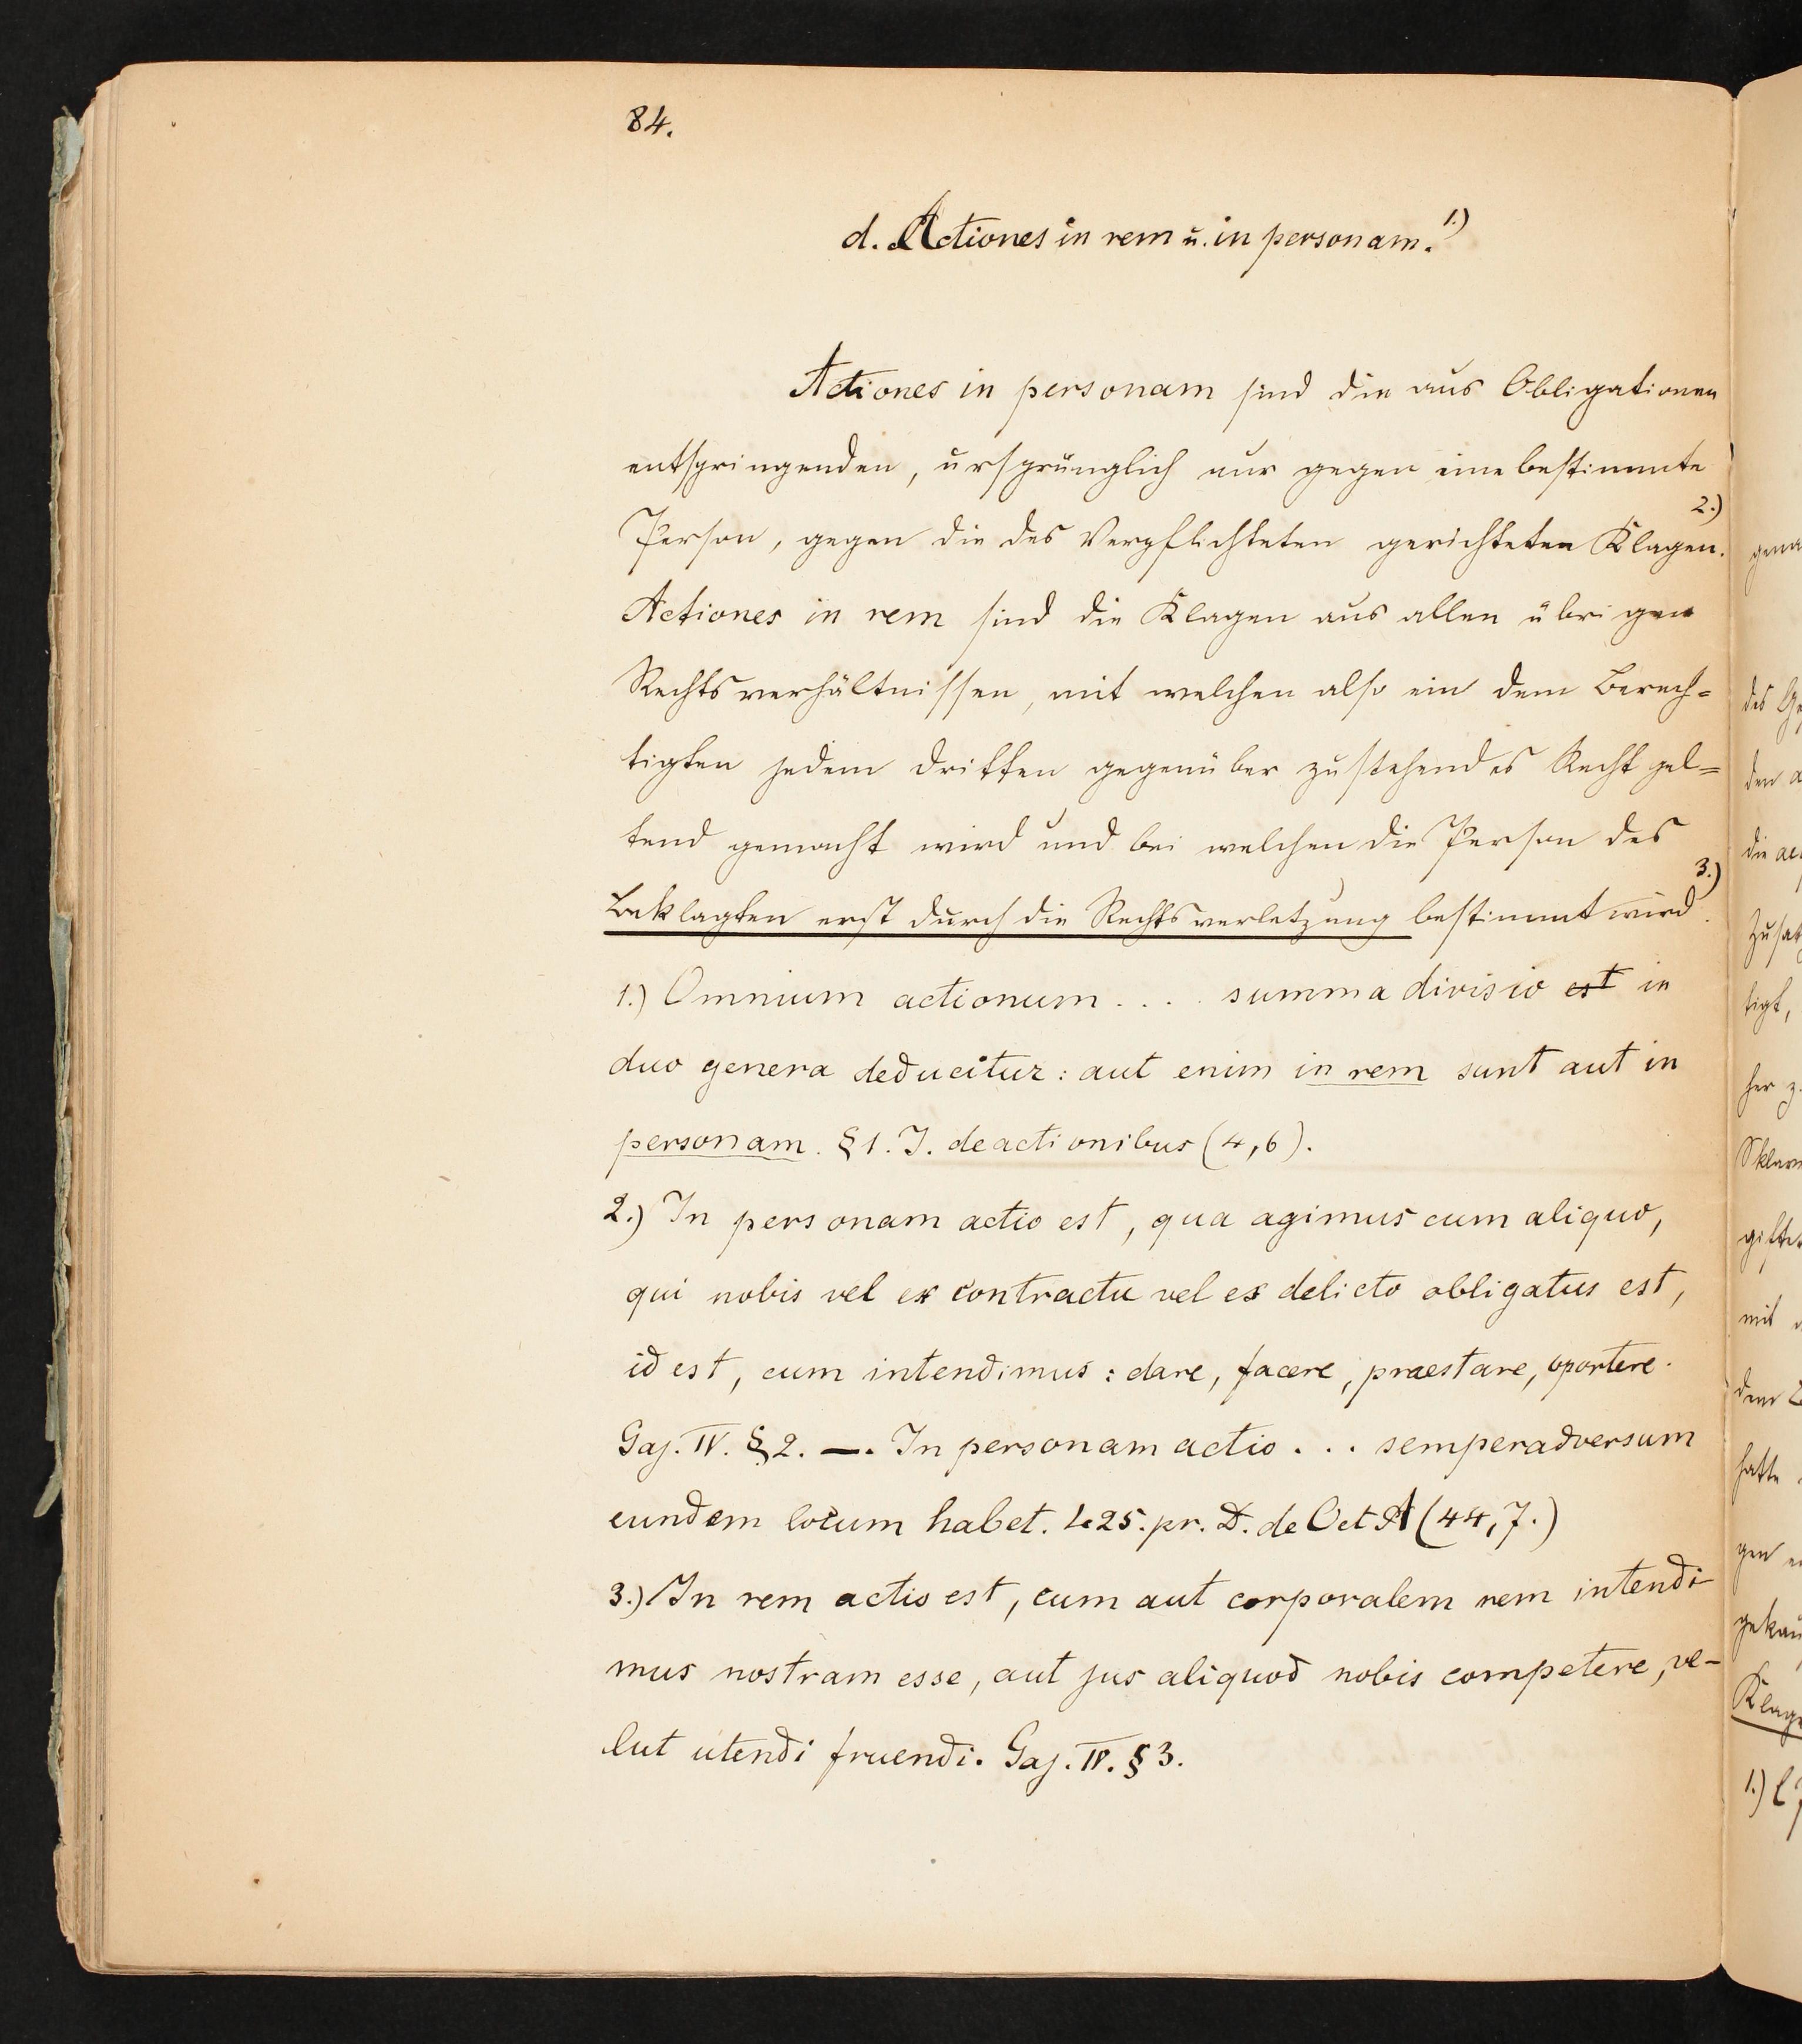 84.
d. Actiones in rem u. in personam. 1.)
Actiones in personam sind die aus Obligationen
entspringenden, ursprünglich nur gegen eine bestimmte
Person, gegen die des Verpflichteten gerichteten Klagen. 2.)
Actiones in rem sind die Klagen aus allen übrigen
Rechtsverhältnissen, mit welchen also ein dem Berech=
tigten jedem Dritten gegenüber zustehendes Recht gel=
tend gemacht wird und bei welchen die Person des
Beklagten erst durch die Rechtsverletzung bestimmt wird. 3.)
1.) Omnium actionum .... summa divisio est in
duo genera deducitur: aut enim in rem sunt aut in
personam. § 1. J. de actionibus (4,6).
2.) In personam actio est, qua agimus cum aliquo,
qui nobis vel ex contractu vel ex delicto obligatus est,
id est, cum intendimus: dare, facere, praestare, oportere.
Gaj. IV. § 2. —. In personam actio ... semper adversum
eundem locum habet. L 25. pr. D. de O et A (44,7.)
3.) In rem actio est, cum aut corporalem rem intendi
mus nostram esse, aut jus aliquod nobis competere, ve-
lut utendi fruendi. Gaj. IV. § 3.
des
den
Zusatz
tigt,
her
mit
dem
hatte
gen
1.)